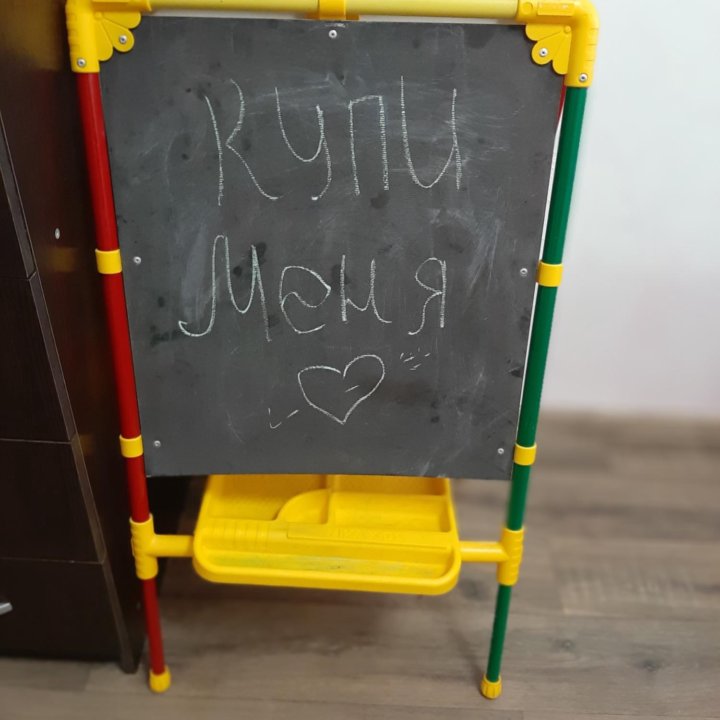 Купи
Меня